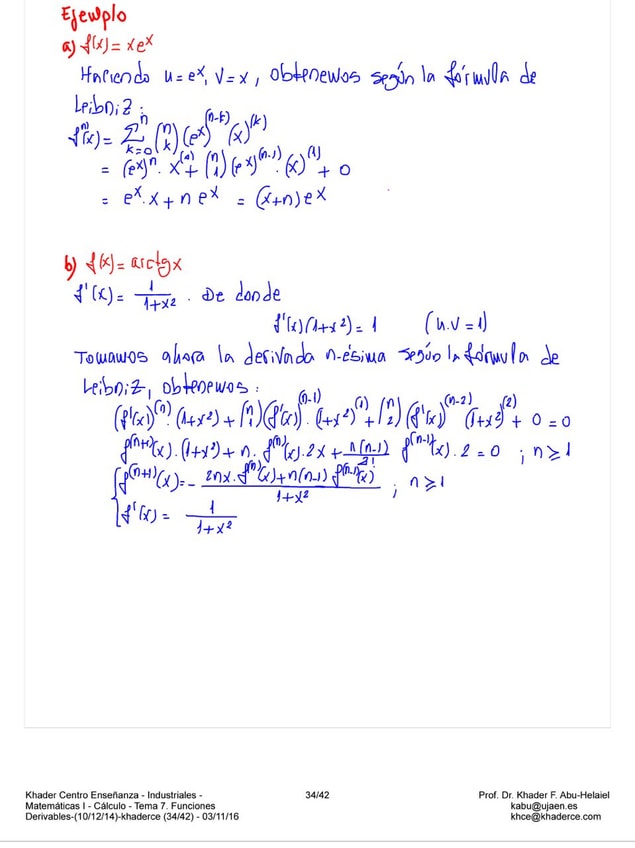 Ejemplo
a) f(x) = xe^x
Haciendo u = e^x, v = x, obtenemos según la fórmula de
Leibniz:
f^(n)(x) = ∑_{k=0}^{n} (n k) (e^x)^(n-k) (x)^(k)
= (e^x)^n · x^(0) + (n 1) (e^x)^(n-1) · (x)^(1) + 0
= e^x · x + n e^x = (x+n) e^x
b) f(x) = arctg x
f'(x) = 1/(1+x²) . De donde
f'(x)(1+x²) = 1 (u.v = 1)
Tomamos ahora la derivada n-ésima según la fórmula de
Leibniz, obtenemos:
(f'(x))^(n) · (1+x²) + (n 1) (f'(x))^(n-1) · (1+x²)^(1) + (n 2) (f'(x))^(n-2) (1+x²)^(2) + 0 = 0
f^(n+1)(x) · (1+x²) + n · f^(n)(x) · 2x + n(n-1)/2! f^(n-1)(x) · 2 = 0 ; n ≥ 1
{ f^(n+1)(x) = - (2nx · f^(n)(x) + n(n-1) f^(n-1)(x))/(1+x²) ; n ≥ 1
f'(x) = 1/(1+x²)
Khader Centro Enseñanza - Industriales -
Matemáticas I - Cálculo - Tema 7. Funciones
Derivables-(10/12/14)-khaderce (34/42) - 03/11/16
34/42
Prof. Dr. Khader F. Abu-Helaiel
kabu@ujaen.es
khce@khaderce.com